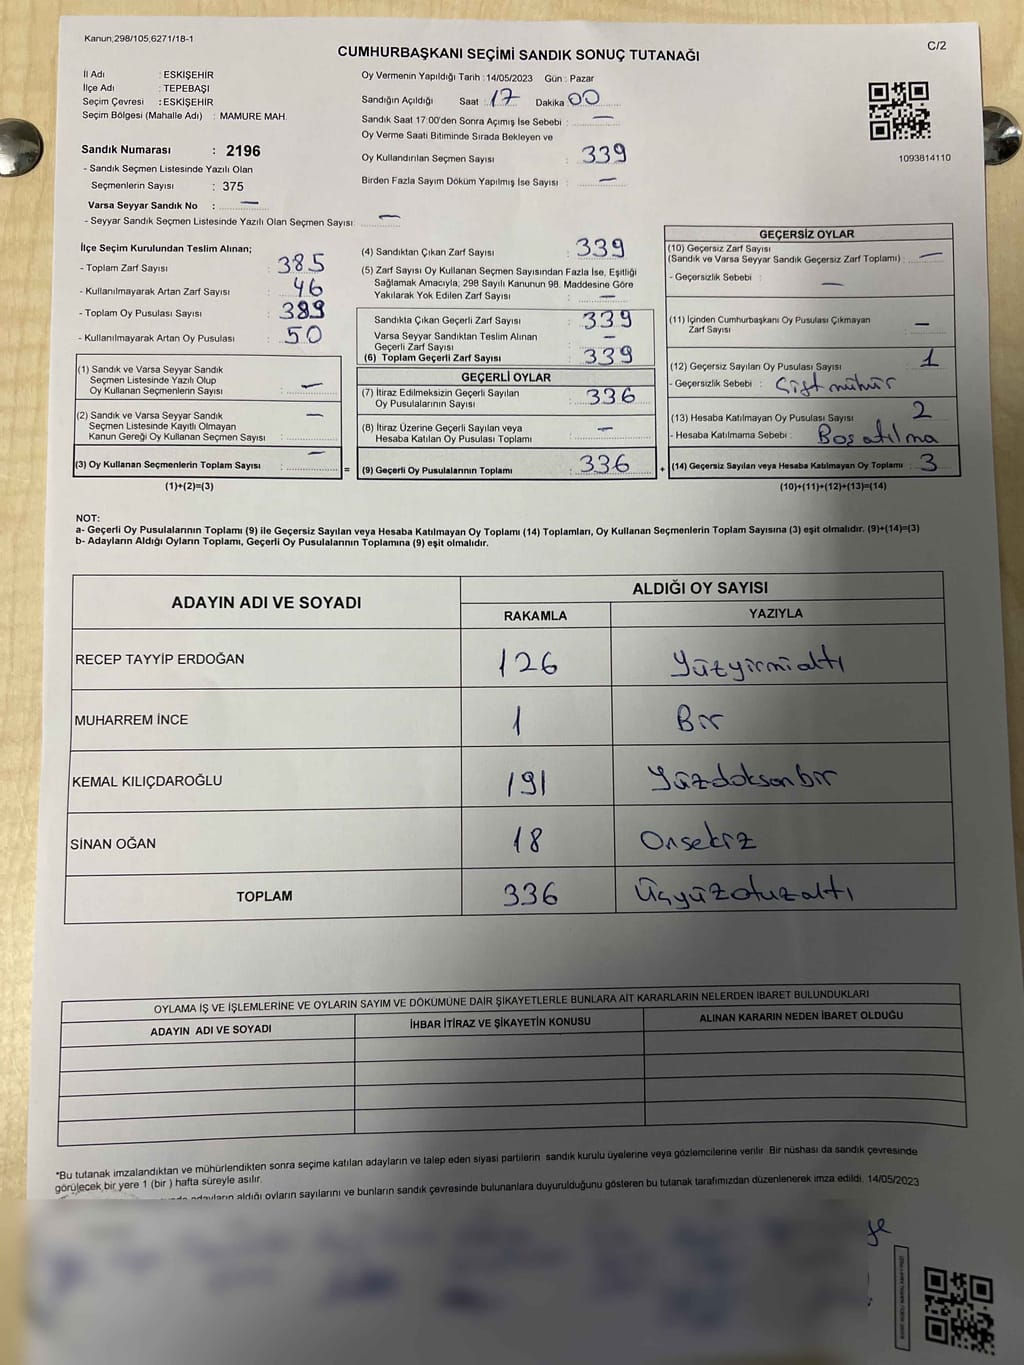 Kanun;298/105,6271/18-1
C/2
CUMHURBAŞKANI SEÇİMİ SANDIK SONUÇ TUTANAĞI
İl Adı : ESKİŞEHİR
İlçe Adı : TEPEBAŞI
Seçim Çevresi : ESKİŞEHİR
Seçim Bölgesi (Mahalle Adı) : MAMURE MAH.
Sandık Numarası : 2196
- Sandık Seçmen Listesinde Yazılı Olan
Seçmenlerin Sayısı : 375
Varsa Seyyar Sandık No : —
- Seyyar Sandık Seçmen Listesinde Yazılı Olan Seçmen Sayısı: —
Oy Vermenin Yapıldığı Tarih :14/05/2023 Gün : Pazar
Sandığın Açıldığı Saat : 17 Dakika 00
Sandık Saat 17:00'den Sonra Açımış İse Sebebi : —
Oy Verme Saati Bitiminde Sırada Bekleyen ve
Oy Kullandırılan Seçmen Sayısı : 339
Birden Fazla Sayım Döküm Yapılmış İse Sayısı : —
1093814110
İlçe Seçim Kurulundan Teslim Alınan;
- Toplam Zarf Sayısı : 385
- Kullanılmayarak Artan Zarf Sayısı : 46
- Toplam Oy Pusulası Sayısı : 389
- Kullanılmayarak Artan Oy Pusulası : 50
(1) Sandık ve Varsa Seyyar Sandık
Seçmen Listesinde Yazılı Olup
Oy Kullanan Seçmenlerin Sayısı : —
(2) Sandık ve Varsa Seyyar Sandık
Seçmen Listesinde Kayıtlı Olmayan
Kanun Gereği Oy Kullanan Seçmen Sayısı : —
(3) Oy Kullanan Seçmenlerin Toplam Sayısı : —
(1)+(2)=(3)
(4) Sandıktan Çıkan Zarf Sayısı : 339
(5) Zarf Sayısı Oy Kullanan Seçmen Sayısından Fazla İse, Eşitliği
Sağlamak Amacıyla; 298 Sayılı Kanunun 98. Maddesine Göre
Yakılarak Yok Edilen Zarf Sayısı : —
Sandıkta Çıkan Geçerli Zarf Sayısı : 339
Varsa Seyyar Sandıktan Teslim Alınan
Geçerli Zarf Sayısı : —
(6) Toplam Geçerli Zarf Sayısı : 339
GEÇERLİ OYLAR
(7) İtiraz Edilmeksizin Geçerli Sayılan
Oy Pusulalarının Sayısı : 336
(8) İtiraz Üzerine Geçerli Sayılan veya
Hesaba Katılan Oy Pusulası Toplamı : —
= (9) Geçerli Oy Pusulalarının Toplamı : 336 +
GEÇERSİZ OYLAR
(10) Geçersiz Zarf Sayısı
(Sandık ve Varsa Seyyar Sandık Geçersiz Zarf Toplamı) : —
- Geçersizlik Sebebi : —
(11) İçinden Cumhurbaşkanı Oy Pusulası Çıkmayan
Zarf Sayısı : —
(12) Geçersiz Sayılan Oy Pusulası Sayısı : 1
- Geçersizlik Sebebi : Çift mühür
(13) Hesaba Katılmayan Oy Pusulası Sayısı : 2
- Hesaba Katılmama Sebebi : Boş atılma
(14) Geçersiz Sayılan veya Hesaba Katılmayan Oy Toplamı : 3
(10)+(11)+(12)+(13)=(14)
NOT:
a- Geçerli Oy Pusulalarının Toplamı (9) ile Geçersiz Sayılan veya Hesaba Katılmayan Oy Toplamı (14) Toplamları, Oy Kullanan Seçmenlerin Toplam Sayısına (3) eşit olmalıdır. (9)+(14)=(3)
b- Adayların Aldığı Oyların Toplamı, Geçerli Oy Pusulalarının Toplamına (9) eşit olmalıdır.
ADAYIN ADI VE SOYADI
ALDIĞI OY SAYISI
RAKAMLA YAZIYLA
RECEP TAYYİP ERDOĞAN 126 Yüzyirmialtı
MUHARREM İNCE 1 Bir
KEMAL KILIÇDAROĞLU 191 Yüzdoksanbir
SİNAN OĞAN 18 Onsekiz
TOPLAM 336 Üçyüzotuzaltı
OYLAMA İŞ VE İŞLEMLERİNE VE OYLARIN SAYIM VE DÖKÜMÜNE DAİR ŞİKAYETLERLE BUNLARA AİT KARARLARIN NELERDEN İBARET BULUNDUKLARI
ADAYIN ADI VE SOYADI İHBAR İTİRAZ VE ŞİKAYETİN KONUSU ALINAN KARARIN NEDEN İBARET OLDUĞU
*Bu tutanak imzalandıktan ve mühürlendikten sonra seçime katılan adayların ve talep eden siyasi partilerin sandık kurulu üyelerine veya gözlemcilerine verilir. Bir nüshası da sandık çevresinde
görülecek bir yere 1 (bir ) hafta süreyle asılır.
adayların aldığı oyların sayılarını ve bunların sandık çevresinde bulunanlara duyurulduğunu gösteren bu tutanak tarafımızdan düzenlenerek imza edildi. 14/05/2023